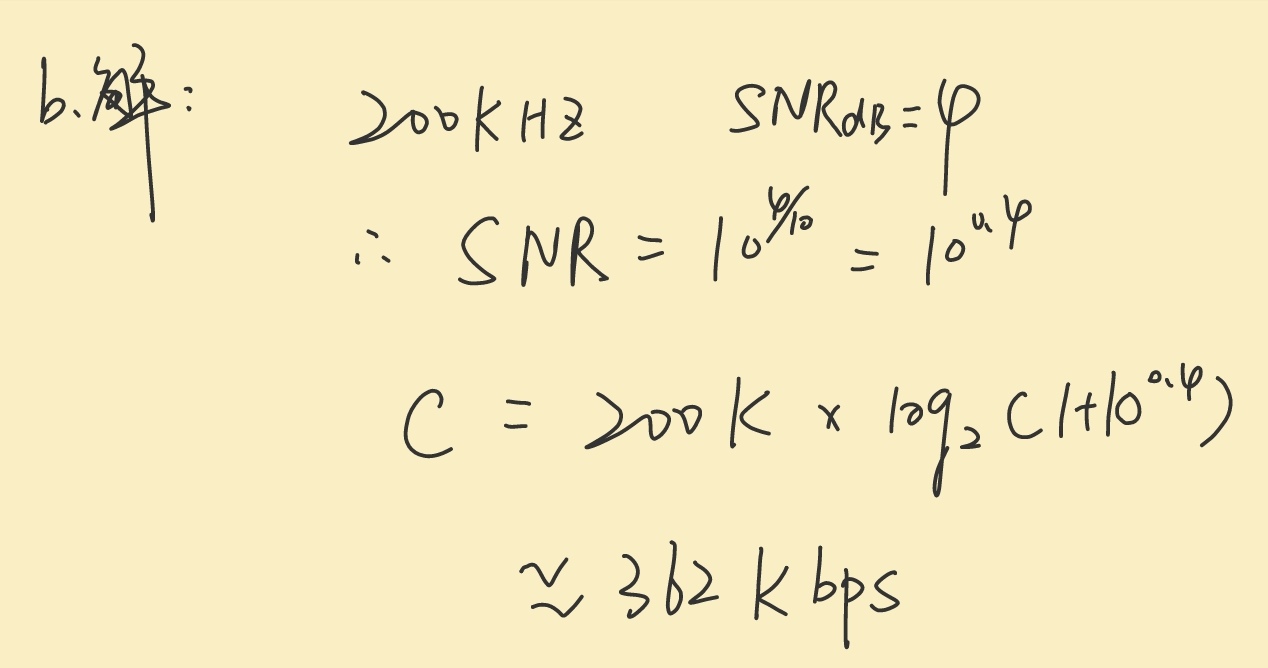 b.解: 200K HZ SNRdB=4
∴ SNR = 10^4/10 = 10^0.4
C = 200K × log₂(1+10^0.4)
≈ 362 K bps